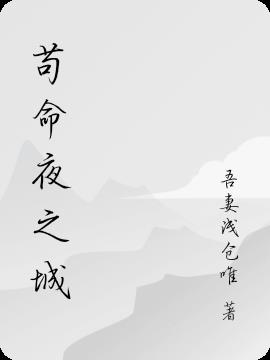 苟命夜之城
吾妻浅仓唯 著